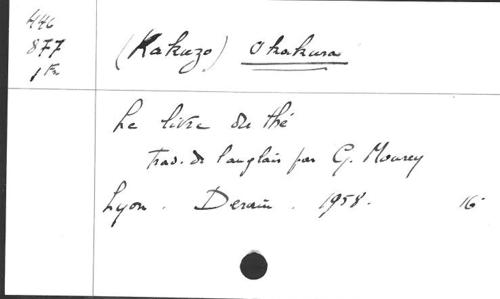 446
877
1 Fr
(Kakuzo) Okakura
Le livre du thé
trad. de l'anglais par G. Mourey
Lyon. Derain. 1958. 16°